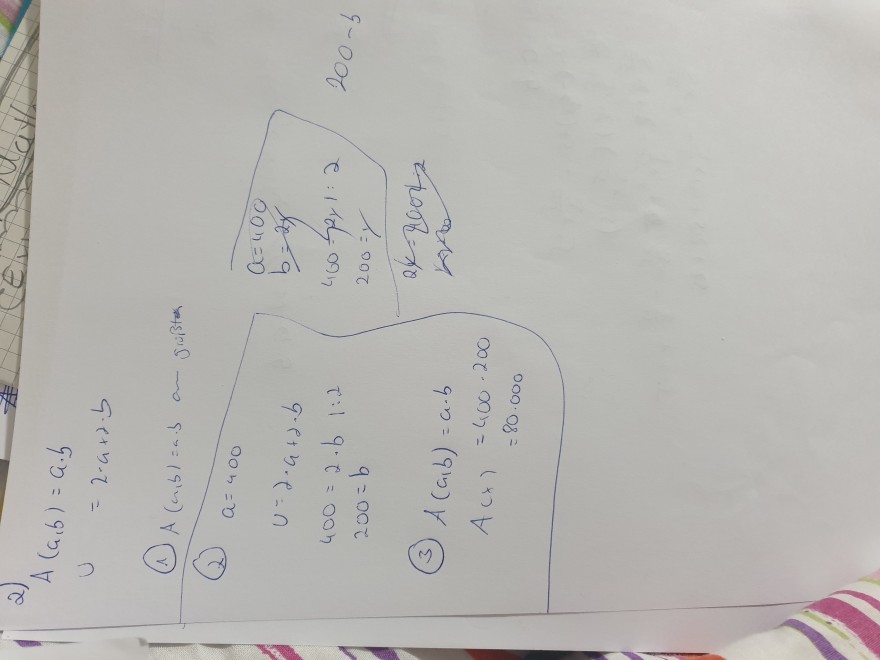 2)
A(a,b) = a·b
U = 2·a+2·b
① A(a,b) = a·b am größten
② a=400
U=2·a+2·b
400 = 2·b |:2
200=b
③ A(a,b) = a·b
A(x) = 400·200
= 80.000
a=400
b=2x
400=2x |:2
200=x
200-b